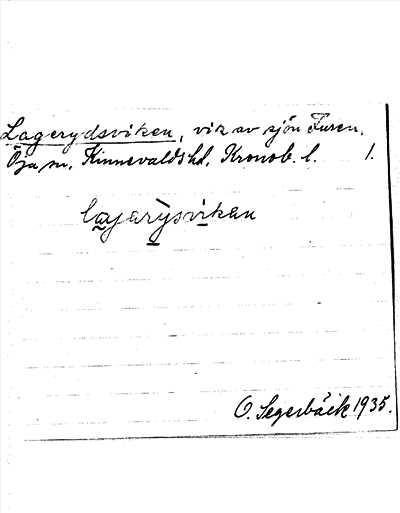 Lagerydsviken, vik av sjön Furen,
Öja sn, Kinnevalds hd, Kronob. l. 1.
lajarysvikan
O. Segerbäck 1935.